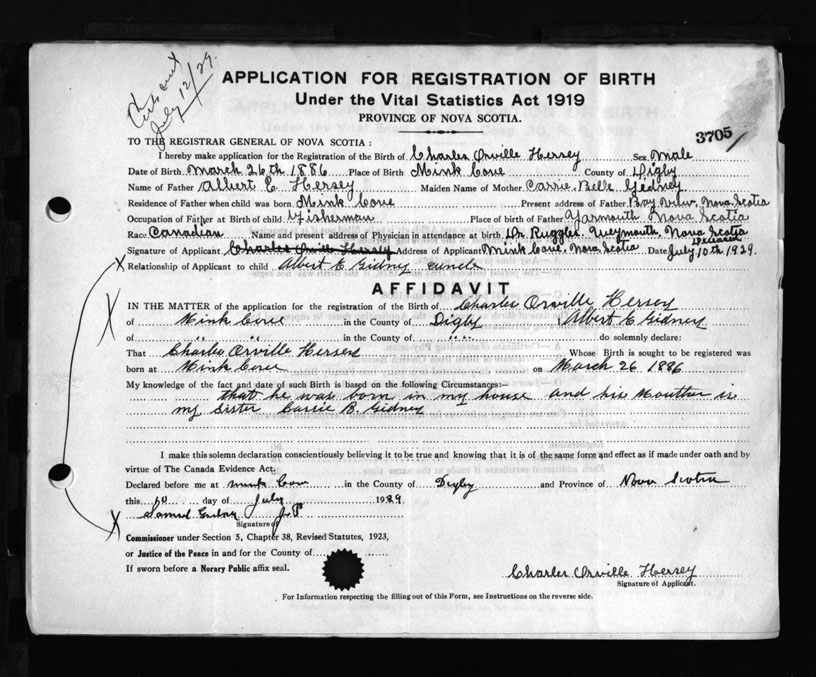 Cert sent
July 12/29.
APPLICATION FOR REGISTRATION OF BIRTH
Under the Vital Statistics Act 1919
PROVINCE OF NOVA SCOTIA.
3705
TO THE REGISTRAR GENERAL OF NOVA SCOTIA:
I hereby make application for the Registration of the Birth of Charles Orville Hersey Sex Male
Date of Birth March 26th 1886 Place of Birth Mink Cove County of Digby
Name of Father Albert E. Hersey Maiden Name of Mother Carrie Belle Gidney
Residence of Father when child was born Mink Cove Present address of Father Bay View, Nova Scotia
Occupation of Father at Birth of child Fisherman Place of birth of Father Yarmouth Nova Scotia
Race Canadian Name and present address of Physician in attendance at birth Dr. Ruggles. Weymouth, Nova Scotia
deceased
Signature of Applicant Charles Orville Hersey Address of Applicant Mink Cove, Nova Scotia Date July 10th 1929.
X Relationship of Applicant to child Albert E Gidney uncle
AFFIDAVIT
IN THE MATTER of the application for the registration of the Birth of Charles Orville Hersey
of Mink Cove in the County of Digby , Albert E Gidney
of " " in the County of " " do solemnly declare:
That Charles Orville Hersey Whose Birth is sought to be registered was
born at Mink Cove on March 26 1886
My knowledge of the fact and date of such Birth is based on the following Circumstances:—
that he was born in my house and his Mouther is
my sister Carrie B. Gidney
I make this solemn declaration conscientiously believing it to be true and knowing that it is of the same force and effect as if made under oath and by
virtue of The Canada Evidence Act.
Declared before me at Mink Cove in the County of Digby and Province of Nova Scotia
this 10 day of July 1929
Samuel J.P.
X Signature of
Commissioner under Section 5, Chapter 38, Revised Statutes, 1923,
or Justice of the Peace in and for the County of
If sworn before a Norary Public affix seal.
Charles Orville Hersey
Signature of Applicant.
For Information respecting the filling out of this Form, see Instructions on the reverse side.